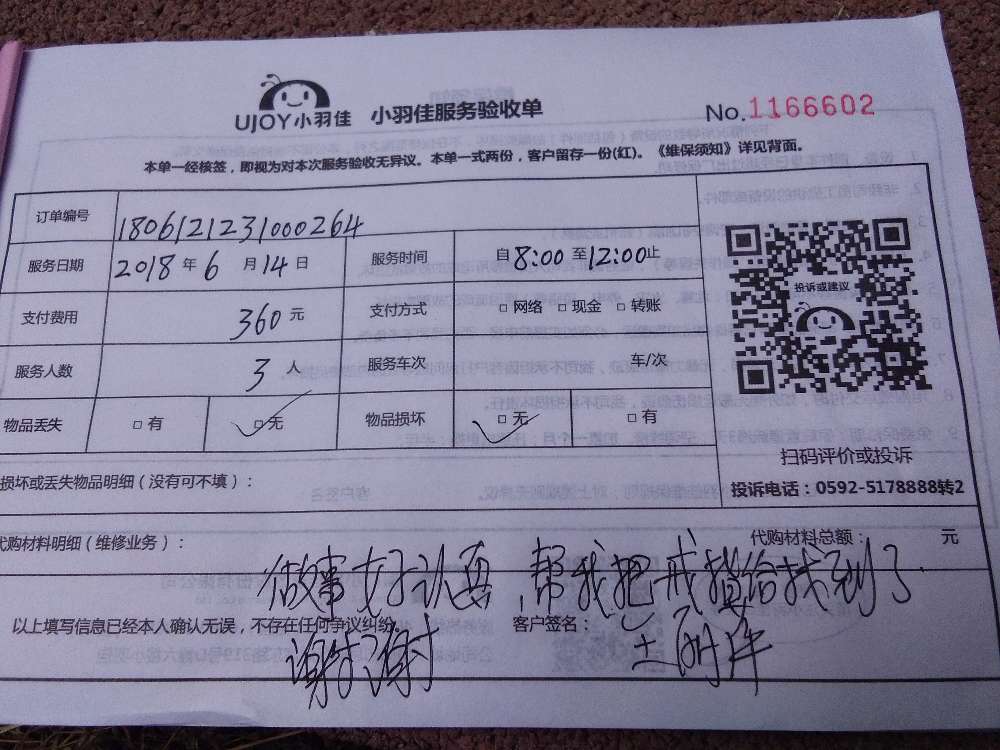 UJOY小羽佳 小羽佳服务验收单 No.1166602
本单一经核签，即视为对本次服务验收无异议。本单一式两份，客户留存一份(红)。《维保须知》详见背面。
订单编号 180612123100264
服务日期 2018 年 6 月 14 日 服务时间 自 8:00 至 12:00 止
投诉或建议
支付费用 360 元 支付方式 □ 网络 □ 现金 □ 转账
服务人数 3 人 服务车次 车/次
物品丢失 □ 有 □ 无 物品损坏 □ 无 □ 有
扫码评价或投诉
投诉电话：0592-5178888转2
损坏或丢失物品明细（没有可不填）：
代购材料明细（维修业务）： 代购材料总额： 元
做事好认真，帮我把戒指给找到了
以上填写信息已经本人确认无误，不存在任何争议纠纷 客户签名：
谢谢